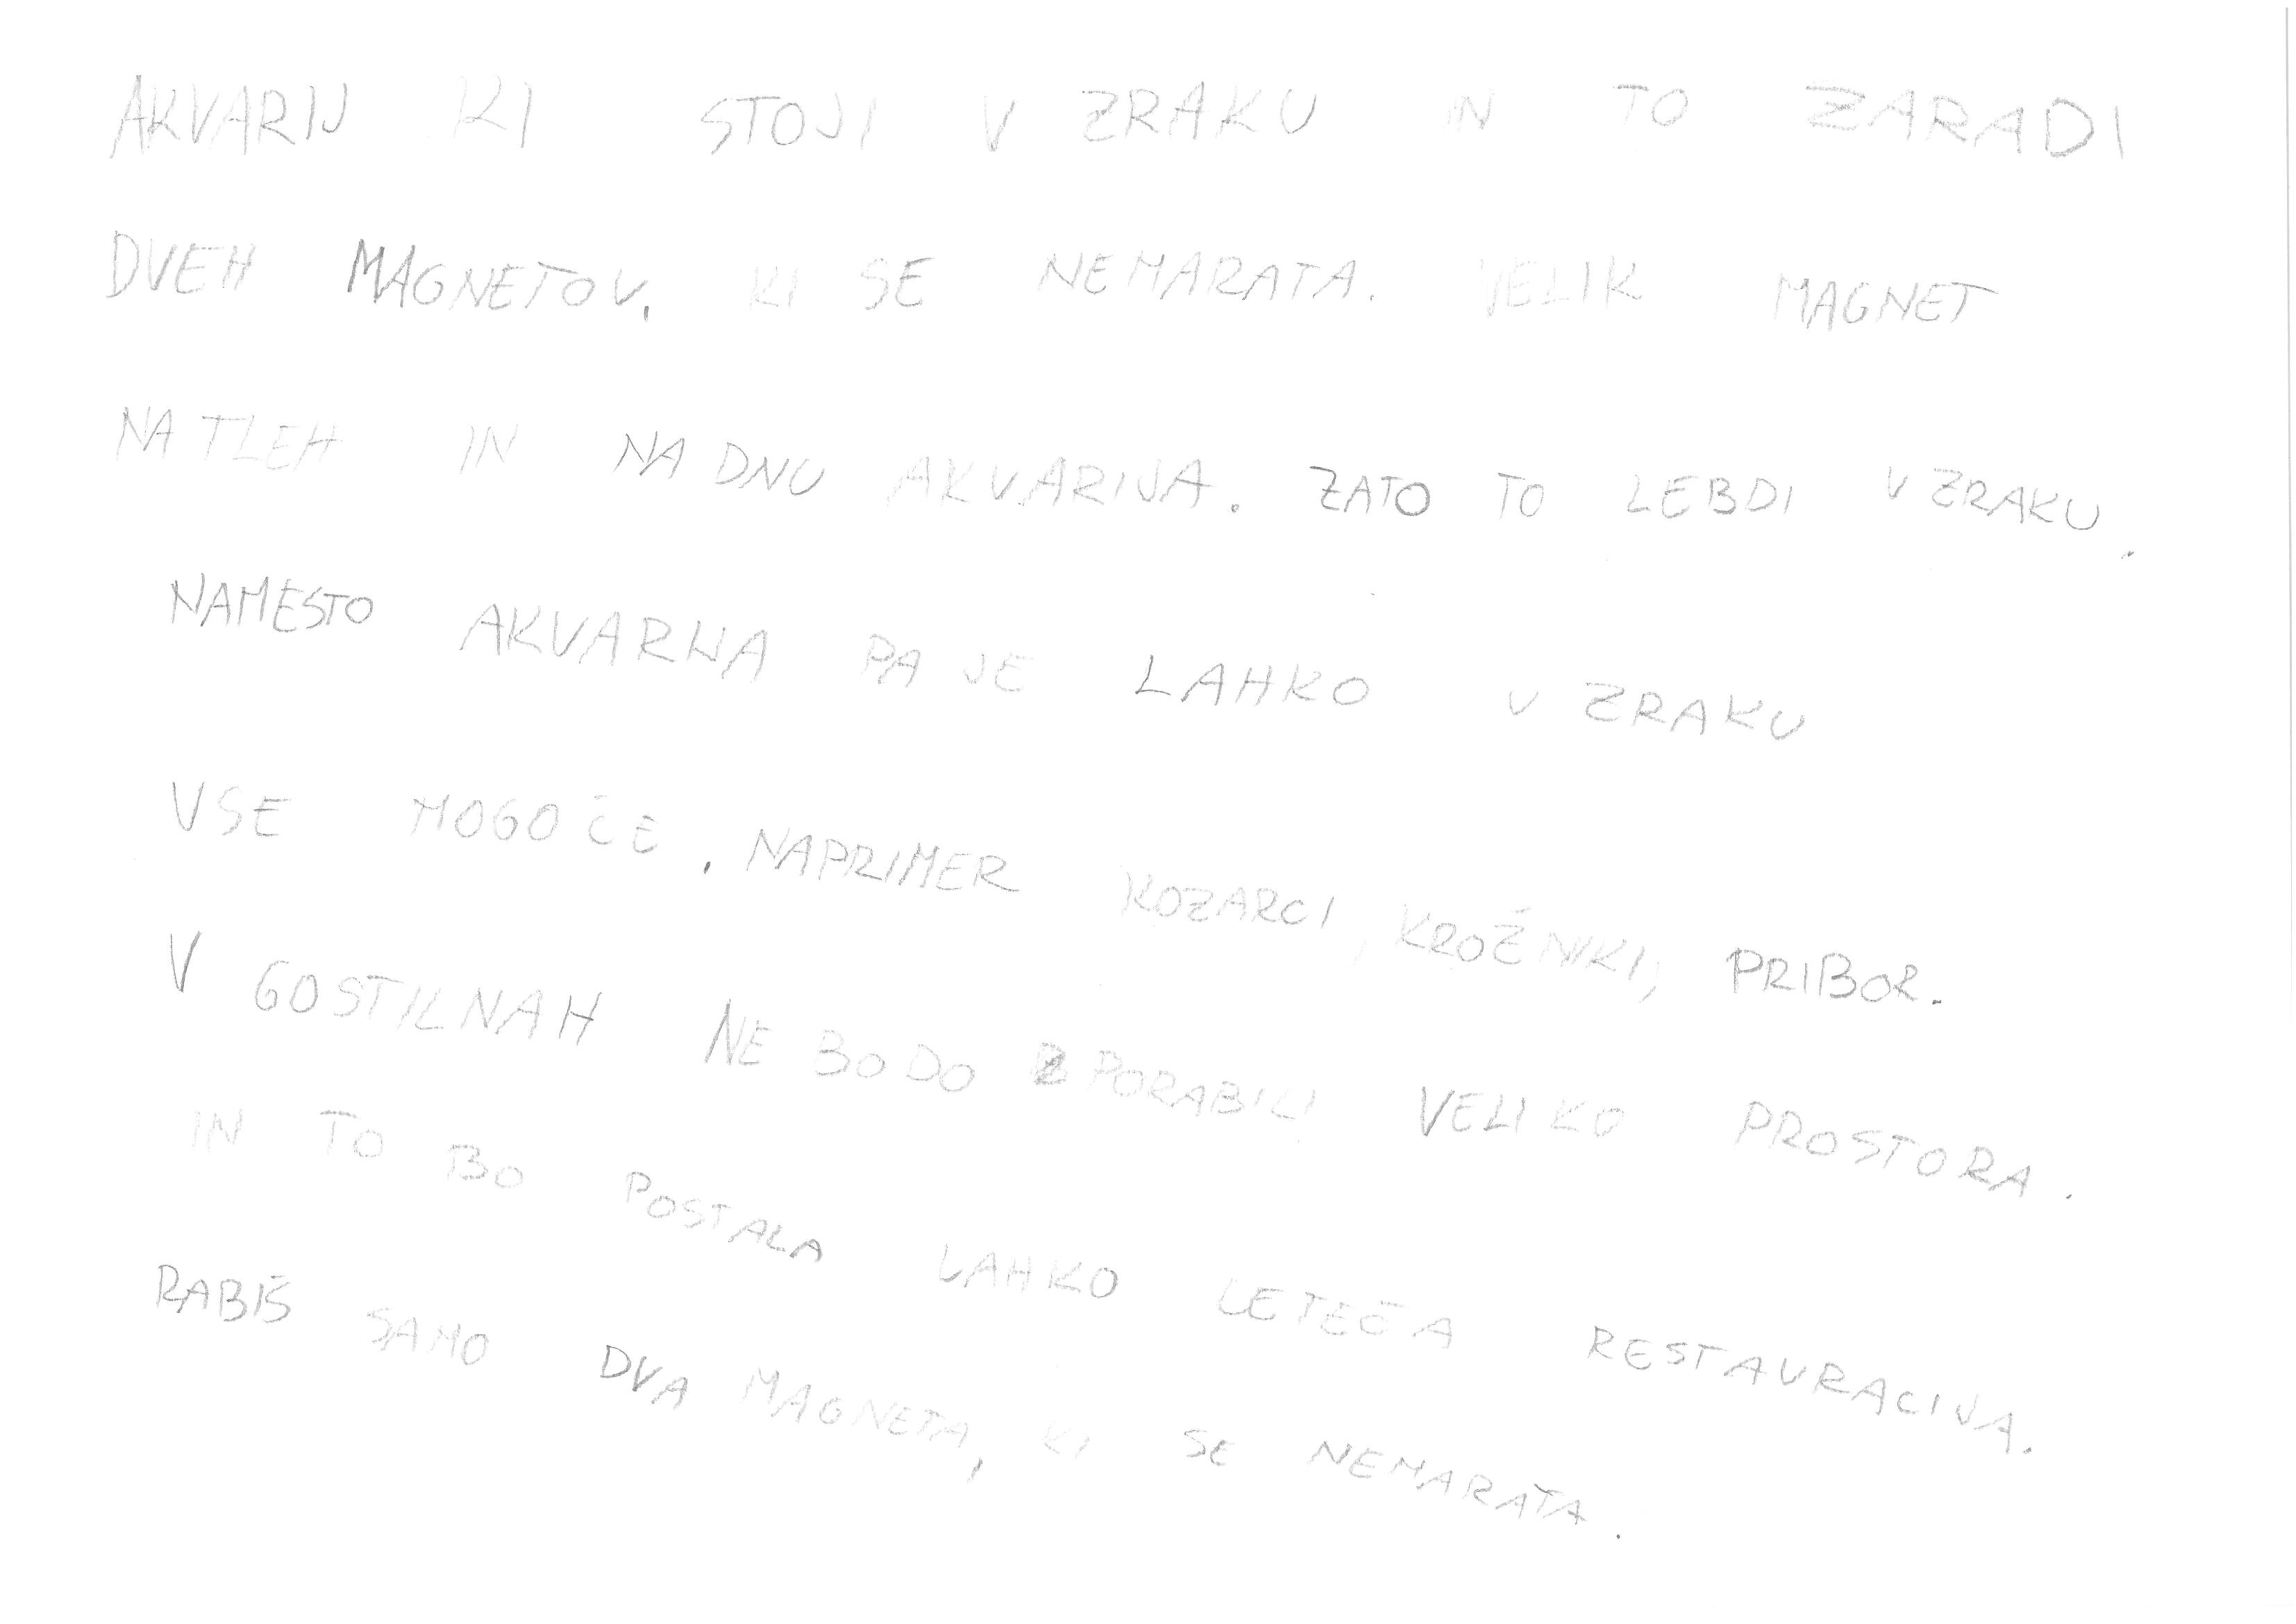 AKVARIJ KI STOJI V ZRAKU IN TO ZARADI
DVEH MAGNETOV, KI SE NEMARATA. VELIK MAGNET
NA TLEH IN NA DNU AKVARIJA. ZATO TO LEBDI V ZRAKU.
NAMESTO AKVARIJA PA JE LAHKO V ZRAKU
VSE MOGOČE, NAPRIMER KOZARCI, KROŽNIKI, PRIBOR.
V GOSTILNAH NE BODO PORABILI VELIKO PROSTORA.
IN TO BO POSTALA LAHKO LETEČA RESTAVRACIJA.
RABIŠ SAMO DVA MAGNETA, KI SE NEMARATA.